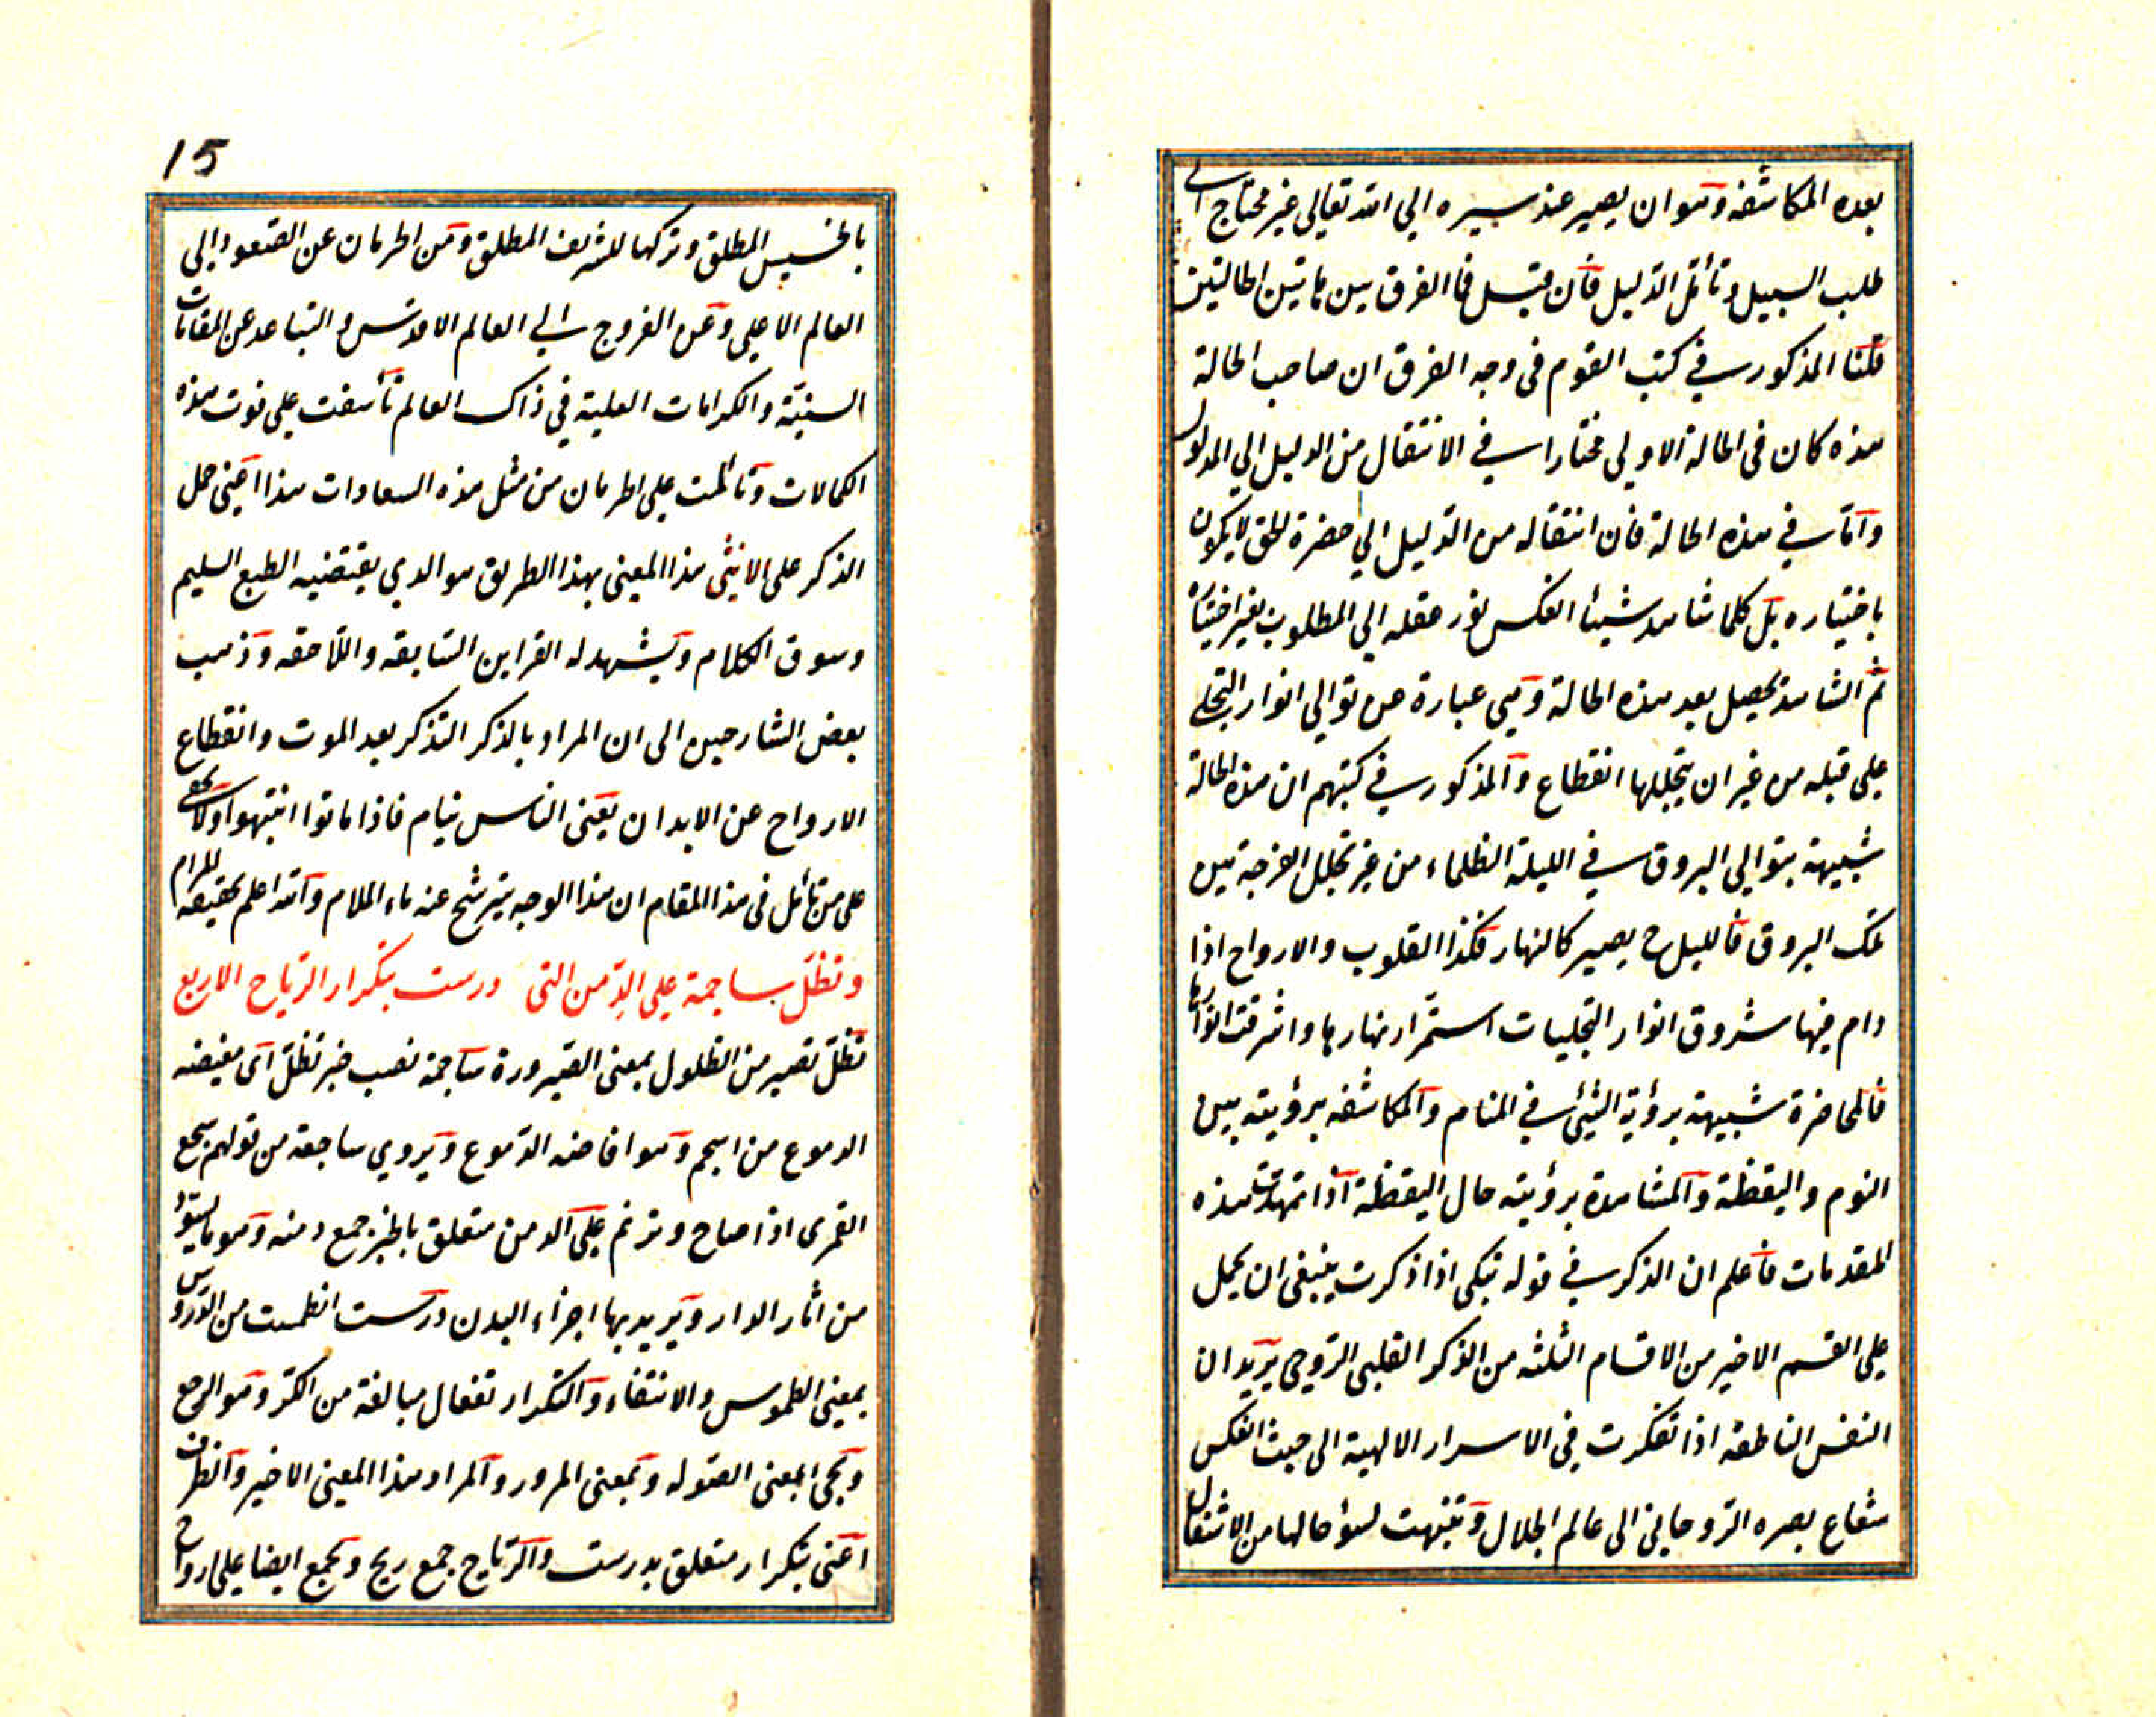 بعده المكاشفة وهو ان يصير عند سيره الي الله تعالي غير محتاج الى
طلب السبيل وتأمل الدليل فان قيل فما الفرق بين هاتين الحالتين
قلنا المذكور في كتب القوم في وجه الفرق ان صاحب الحالة
هذه كان في الحالة الاولي مختارا في الانتقال من الدليل الي المدلول
وامّا في هذه الحالة فان انتقاله من الدليل الي حضرة الحق لا يكون
باختياره بل كلما شاهد شيئا انعكس نور عقله الي المطلوب بغير اختياره
ثم المشاهدة يحصل بعد هذه الحالة وهي عبارة عن توالي انوار التجلي
علي قلبه من غير ان يتخللها انقطاع والمذكور في كتبهم ان هذه الحالة
شبيهة بتوالي البروق في الليلة الظلماء من غير تخلل الفرجة بين
تلك البروق فالليل ح يصير كالنهار فكذا القلوب والارواح اذا
دام فيها شروق انوار التجليات استمّرار نهارها واشرقت انوارها
فالمحاضرة شبيهة برؤية الشيء في المنام والمكاشفه برؤيته بين
النوم واليقظة والمشاهدة برؤيته حال اليقظة اذا تمهدت هذه
المقدمات فاعلم ان الذكر في قوله تبكى اذا ذكرت ينبغى ان يحمل
علي القسم الاخير من الاقسام الثلثه من الذكر القلبى الرّوحى يريد ان
النفس الناطقه اذا تفكرت في الاسرار الالهية الى حيث انعكس
شعاع بصره الرّوحاني الى عالم الجلال وتنبهت لسؤ حالها من الاشتغال
15
بالخسيس المطلق وتركها للشريف المطلق ومن الحرمان عن الصّعود الى
العالم الاعلي وعن العروج الي العالم الاقدس والتباعد عن المقامات
السنيّة والكرامات العلية في ذاك العالم تأسفت على فوت هذه
الكمالات وتألمت علي الحرمان من مثل هذه السعادات هذا اعنى حمل
الذكر على الانثى هذا المعنى بهذا الطريق هو الدي يقتضيه الطبع السليم
وسوق الكلام ويشهد له القراين السّابقه واللّاحقه وذهب
بعض الشارحين الى ان المراد بالذكر التذكر بعد الموت وانقطاع
الارواح عن الابدان يعنى الناس نيام فاذا ماتوا انتبهوا ولا يخفى
على من تأمل في هذا المقام ان هذا الوجه يترشح عنه ماء الملام والله اعلم بحقيقه المرام
وتظلّ ساجمة علي الدّمن التى درست بتكرار الرّياح الاربع
تظلّ تصير من الظلول بمعنى الصّيرورة ساجمة نصب خبر تظلّ اى مفيضه
الدموع من اسجم وهو افاضه الدّموع ويروي ساجعة من قولهم سجع
القمرى اذا صاح وترنم علي الدمن متعلق بالخبر جمع دمنه وهو ما يسوّد
من اثار الدار ويريد بها اجزاء البدن درست انطمست من الدّروس
بمعنى الطموس والانتفاء والتكرار تفعال مبالغة من الكرّ وهو الرجع
ويجئ بمعنى الصّوله وبمعنى المرور والمراد هذا المعنى الاخير والظرف
اعنى بتكرار متعلق بدرست والرّياح جمع ريح ويجمع ايضا على ارواح